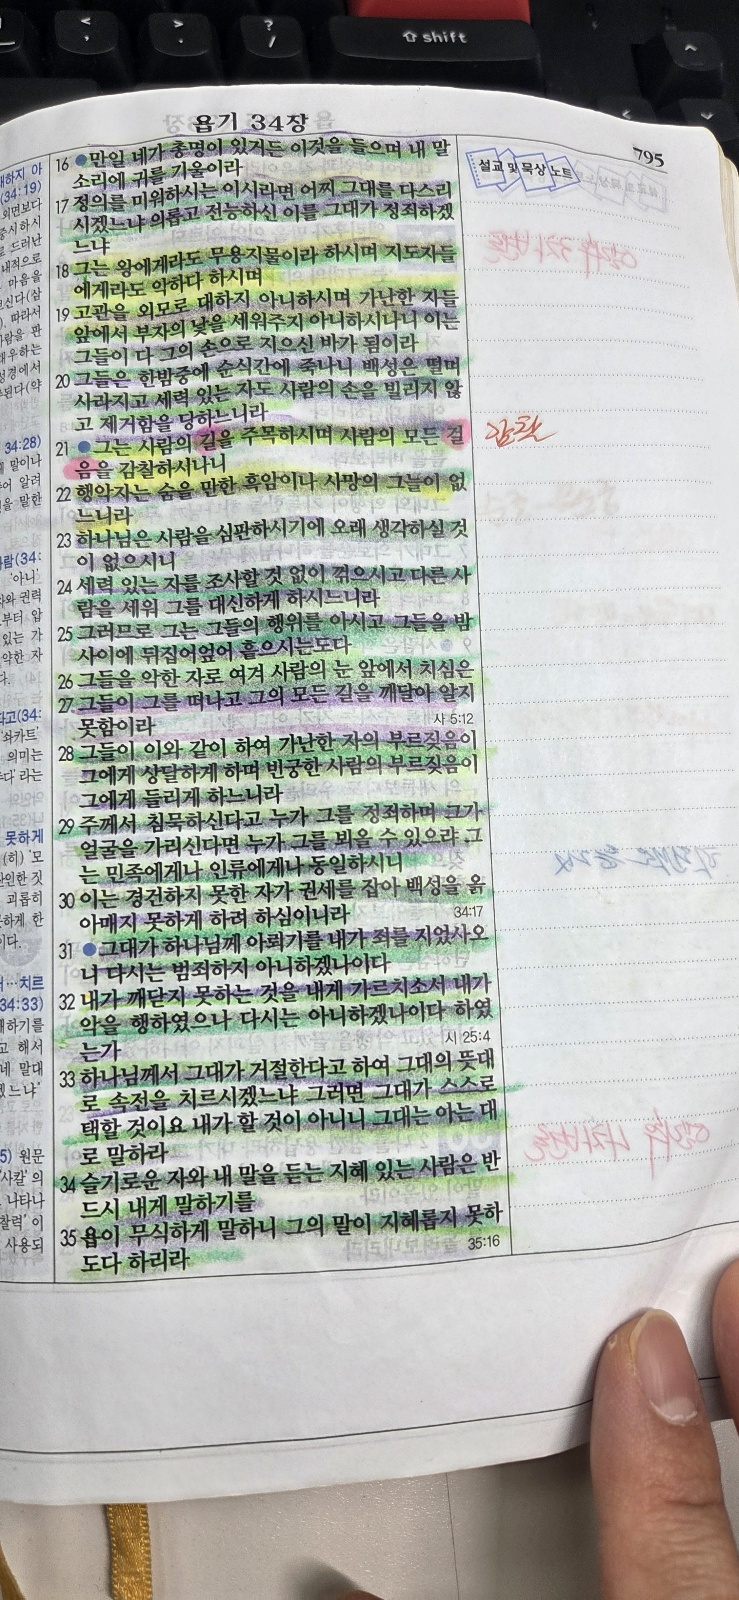 <
,
>
.
?
/
⇧ shift
욥기 34장
795
설교 및 묵상 노트
16 ●만일 네가 총명이 있거든 이것을 들으며 내 말
소리에 귀를 기울이라
17 정의를 미워하시는 이시라면 어찌 그대를 다스리
시겠느냐 의롭고 전능하신 이를 그대가 정죄하겠
느냐
18 그는 왕에게라도 무용지물이라 하시며 지도자들
에게라도 악하다 하시며
19 고관을 외모로 대하지 아니하시며 가난한 자들
앞에서 부자의 낯을 세워주지 아니하시나니 이는
그들이 다 그의 손으로 지으신 바가 됨이라
20 그들은 한밤중에 순식간에 죽나니 백성은 떨며
사라지고 세력 있는 자도 사람의 손을 빌리지 않
고 제거함을 당하느니라
21 ●그는 사람의 길을 주목하시며 사람의 모든 걸
음을 감찰하시나니
감찰
22 행악자는 숨을 만한 흑암이나 사망의 그늘이 없
느니라
23 하나님은 사람을 심판하시기에 오래 생각하실 것
이 없으시니
24 세력 있는 자를 조사할 것 없이 꺾으시고 다른 사
람을 세워 그를 대신하게 하시느니라
25 그러므로 그는 그들의 행위를 아시고 그들을 밤
사이에 뒤집어엎어 흩으시는도다
26 그들을 악한 자로 여겨 사람의 눈 앞에서 치심은
27 그들이 그를 떠나고 그의 모든 길을 깨달아 알지
못함이라 사 5:12
28 그들이 이와 같이 하여 가난한 자의 부르짖음이
그에게 상달하게 하며 빈궁한 사람의 부르짖음이
그에게 들리게 하느니라
29 주께서 침묵하신다고 누가 그를 정죄하며 그가
얼굴을 가리신다면 누가 그를 뵈올 수 있으랴 그
는 민족에게나 인류에게나 동일하시니
30 이는 경건하지 못한 자가 권세를 잡아 백성을 옭
아매지 못하게 하려 하심이니라 34:17
31 ●그대가 하나님께 아뢰기를 내가 죄를 지었사오
니 다시는 범죄하지 아니하겠나이다
32 내가 깨닫지 못하는 것을 내게 가르치소서 내가
악을 행하였으나 다시는 아니하겠나이다 하였
는가 시 25:4
33 하나님께서 그대가 거절한다고 하여 그대의 뜻대
로 속전을 치르시겠느냐 그러면 그대가 스스로
택할 것이요 내가 할 것이 아니니 그대는 아는 대
로 말하라
34 슬기로운 자와 내 말을 듣는 지혜 있는 사람은 반
드시 내게 말하기를
35 욥이 무식하게 말하니 그의 말이 지혜롭지 못하
도다 하리라 35:16